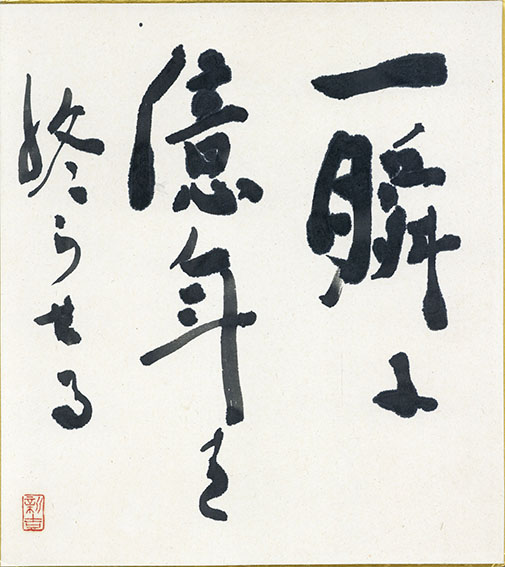 一瞬に
億年を
終らせる
新吉